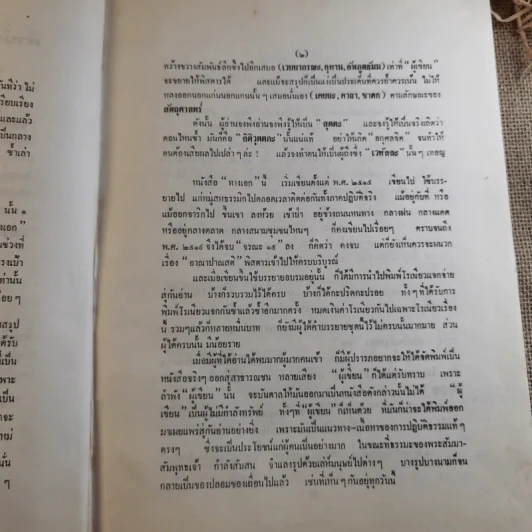 ที่ว่า ไม่
เรียบเรียง
และแล้ว
เป็นกลาง
ซ้ำเล่า
นั้น ๑
(๒)
กว้างขวางสัมพันธ์ลึกซึ้งไปอีกเสมอ (เวยยากรณะ, อุทาน, อัพภูตธัมม) เท่าที่ "ผู้เขียน"
จะขยายให้พิสดารได้ และแม้จะสรุปก็เป็นแง่เป็นประเด็นที่ควรย้ำควรเน้น ไม่ให้
หลงออกนอกแก่นนอกแกนนั้น ๆ เสมอนั่นเอง (เคยยะ, คาถา, ชาดก) ตามลักษณะของ
สัตถุศาสตร์
ดังนั้น ผู้อ่านจงพึงอ่านจงพึงรู้ให้เป็น "สุตตะ" และจงรู้ให้เป็นจริงเถิดว่า
ตอนไหนซ้ำ มันก็คือ "อิติวุตตกะ" นั่นแน่แท้ อย่าให้เกิด "อกุศลจิต" จนทำให้
ตนต้องเสียผลไปเปล่า ๆ ล่ะ ! แล้วจงทำตนให้เป็นผู้ถึงซึ่ง "เวทัลละ" นั้น ๆ เทอญ
หนังสือ "ทางเอก" นี้ เริ่มเขียนตั้งแต่ พ.ศ. ๒๕๑๕ เขียนไป ใช้บรร-
ยายไป แก่หมู่สหธรรมิกไปตลอดเวลาติดต่อกันทั้งภาคปฏิบัติจริง แม้อยู่กับที่ หรือ
แม้ออกจาริกไป ขึ้นเขา ลงห้วย เข้าป่า อยู่ข้างถนนหนทาง กลางฝน กลางแดด
หรืออยู่กลางตลาด กลางสนามชุมชนไหนๆ ก็คงเขียนไปเรื่อยๆ ตราบจนถึง
พ.ศ. ๒๕๑๖ จึงได้จบ "จรณะ ๑๕" ลง ก็คิดว่า คงจบ แต่ก็ยังเห็นควรจะผนวก
เรื่อง "อานาปาณสติ" พิสดารเข้าไปให้ครบบริบูรณ์
และเมื่อเขียนขึ้นใช้บรรยายอบรมอยู่นั้น ก็ได้มีการนำไปพิมพ์โรเนียวแจกจ่าย
สู่กันอ่าน บ้างก็รวบรวมไว้ได้ครบ บ้างก็ได้กะปริดกะปรอย ทั้ง ๆ ที่ได้รับการ
พิมพ์โรเนียวแจกกันซ้ำแล้วซ้ำอีกมากครั้ง หมดเงินค่าโรเนียวกันไปเฉพาะโรเนียวเรื่อง
นี้ รวมๆแล้วก็หลายหมื่นบาท ก็ยังมีผู้ได้คำบรรยายชุดนี้ไว้ไม่ครบนั้นมากมาย ส่วน
ผู้ได้ครบนั้น มีน้อยราย
เมื่อมีผู้ที่ได้อ่านได้พบมากผู้มากคนเข้า ก็มีผู้ปรารภอยากจะให้ได้จัดพิมพ์เป็น
หนังสือจริงๆ ออกสู่สาธารณชน หลายเสียง "ผู้เขียน" ก็ได้แต่รับทราบ เพราะ
ลำพัง "ผู้เขียน" นั้น จะบันดาลให้มันออกมาเป็นหนังสือดังกล่าวนั้นไม่ได้ "ผู้
เขียน" เป็นผู้ไม่มีกำลังทรัพย์ ทั้งๆที่ "ผู้เขียน" ก็เห็นด้วย ที่มันก็น่าจะได้พิมพ์ออก
มาเผยแพร่สู่กันอ่านอย่างยิ่ง เพราะมันเป็นแนวทาง-เนื้อหาของการปฏิบัติธรรมแท้ ๆ
ตรงๆ ซึ่งจะเป็นประโยชน์แก่ผู้คนเป็นอย่างมาก ในขณะที่ธรรมะของพระสัมมา-
สัมพุทธเจ้า กำลังสับสน จำแลงรูปด้วยเล่ห์มนุษย์ไปต่างๆ บางรูปบางนามก็จน
กลายเป็นของปลอมของเถื่อนไปแล้ว เช่นที่เห็น ๆ กันอยู่ทุกวันนี้